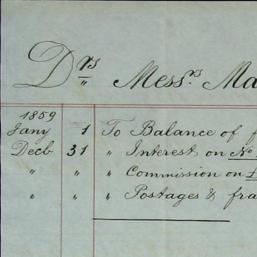 Drs Messrs Ma
1859
Jany 1 To Balance of f
Decb 31 " Interest on No
" " " Commission on £
" " " Postages & fra